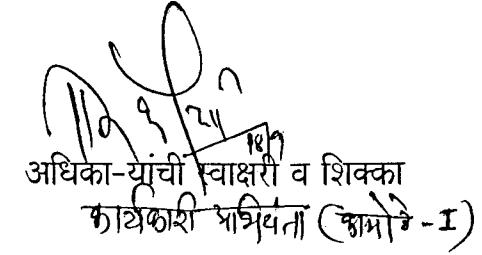 18/9
अधिका-यांची स्वाक्षरी व शिक्का
कार्यकारी अभियंता (कामोठे - I)